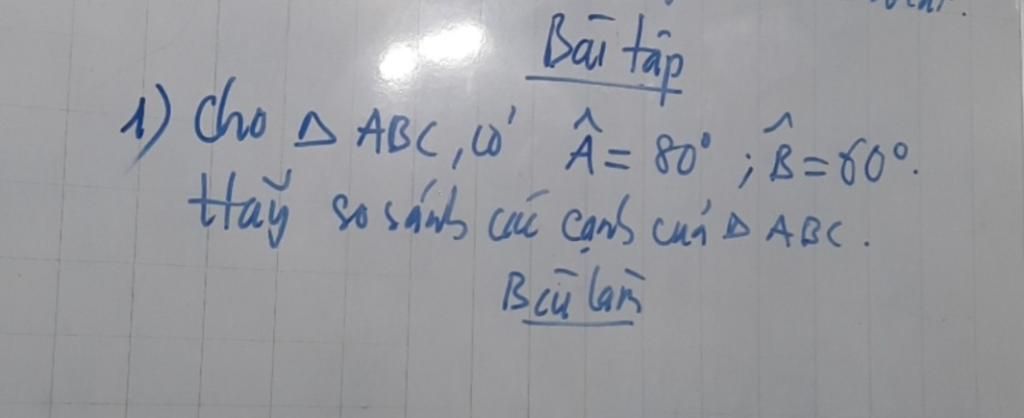 Bài tập
1) Cho Δ ABC, có Â = 80° ; B̂ = 60°.
Hãy so sánh các cạnh của Δ ABC.
Bài làm